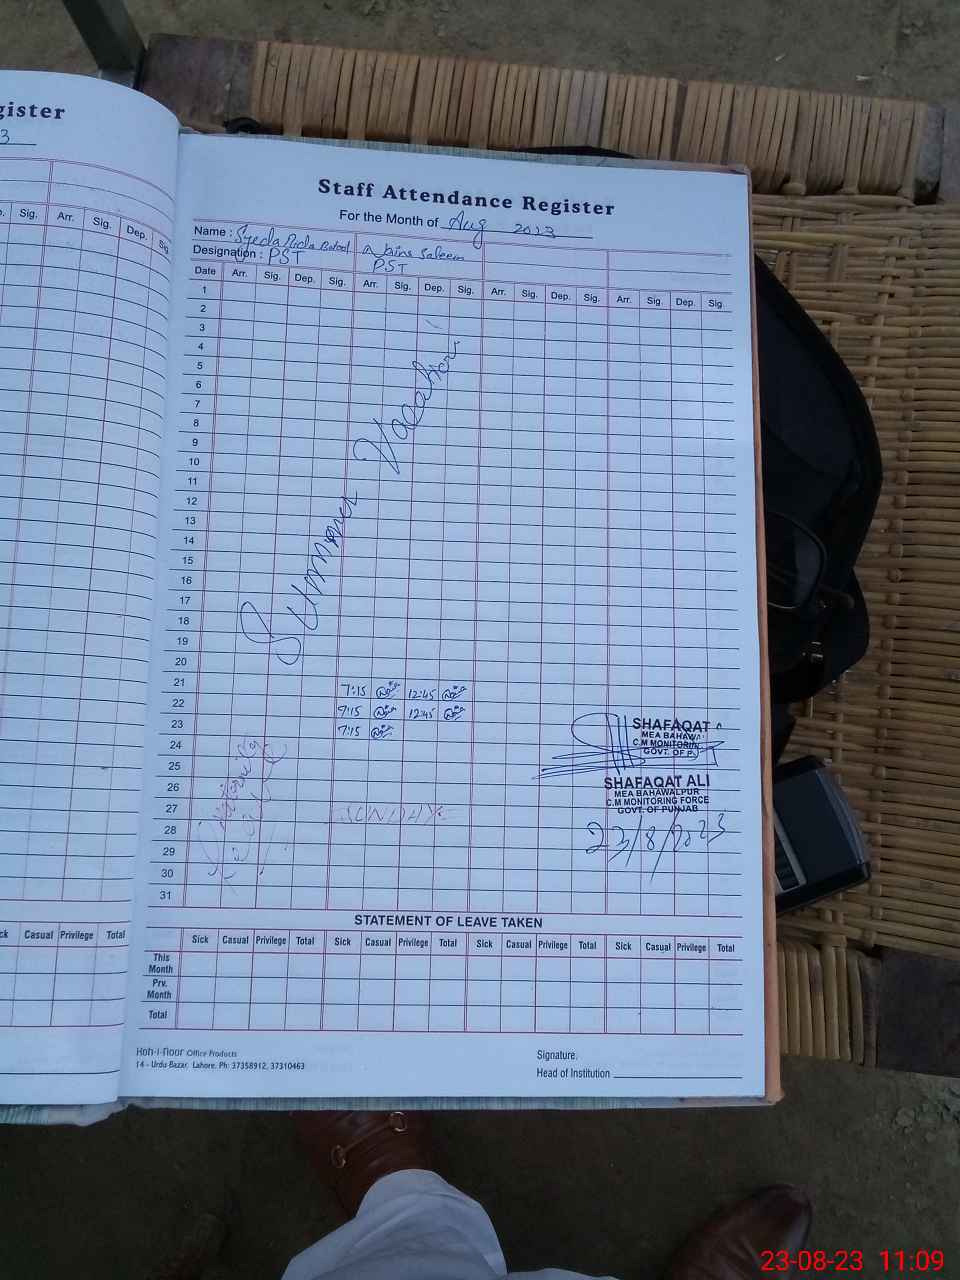 gister
3
Sig. Arr. Sig. Dep. Sig.
Casual Privilege Total
Staff Attendance Register
For the Month of Aug 2023
Name : Syeda Rida Batool Saleem
Designation : PST PST
Date Arr. Sig. Dep. Sig. Arr. Sig. Dep. Sig. Arr. Sig. Dep. Sig. Arr. Sig. Dep. Sig.
1
2
3
4
5
6
7
8
9
10
11
12
13
14
15
16
17
18
19
20
21 7:15 12:45
22 7:15 12:45
23 7:15
24
25
26
27 SUNDAY
28
29
30
31
Summer Vacation
SHAFAQAT
MEA BAHAW
C.M MONITORIN
GOVT. OF P
SHAFAQAT ALI
MEA BAHAWALPUR
C.M MONITORING FORCE
GOVT. OF PUNJAB
23/8/2023
STATEMENT OF LEAVE TAKEN
Sick Casual Privilege Total Sick Casual Privilege Total Sick Casual Privilege Total Sick Casual Privilege Total
This Month
Prv. Month
Total
Koh-i-noor Office Products
14 - Urdu Bazar, Lahore. Ph: 37358912, 37310463
Signature.
Head of Institution
23-08-23 11:09